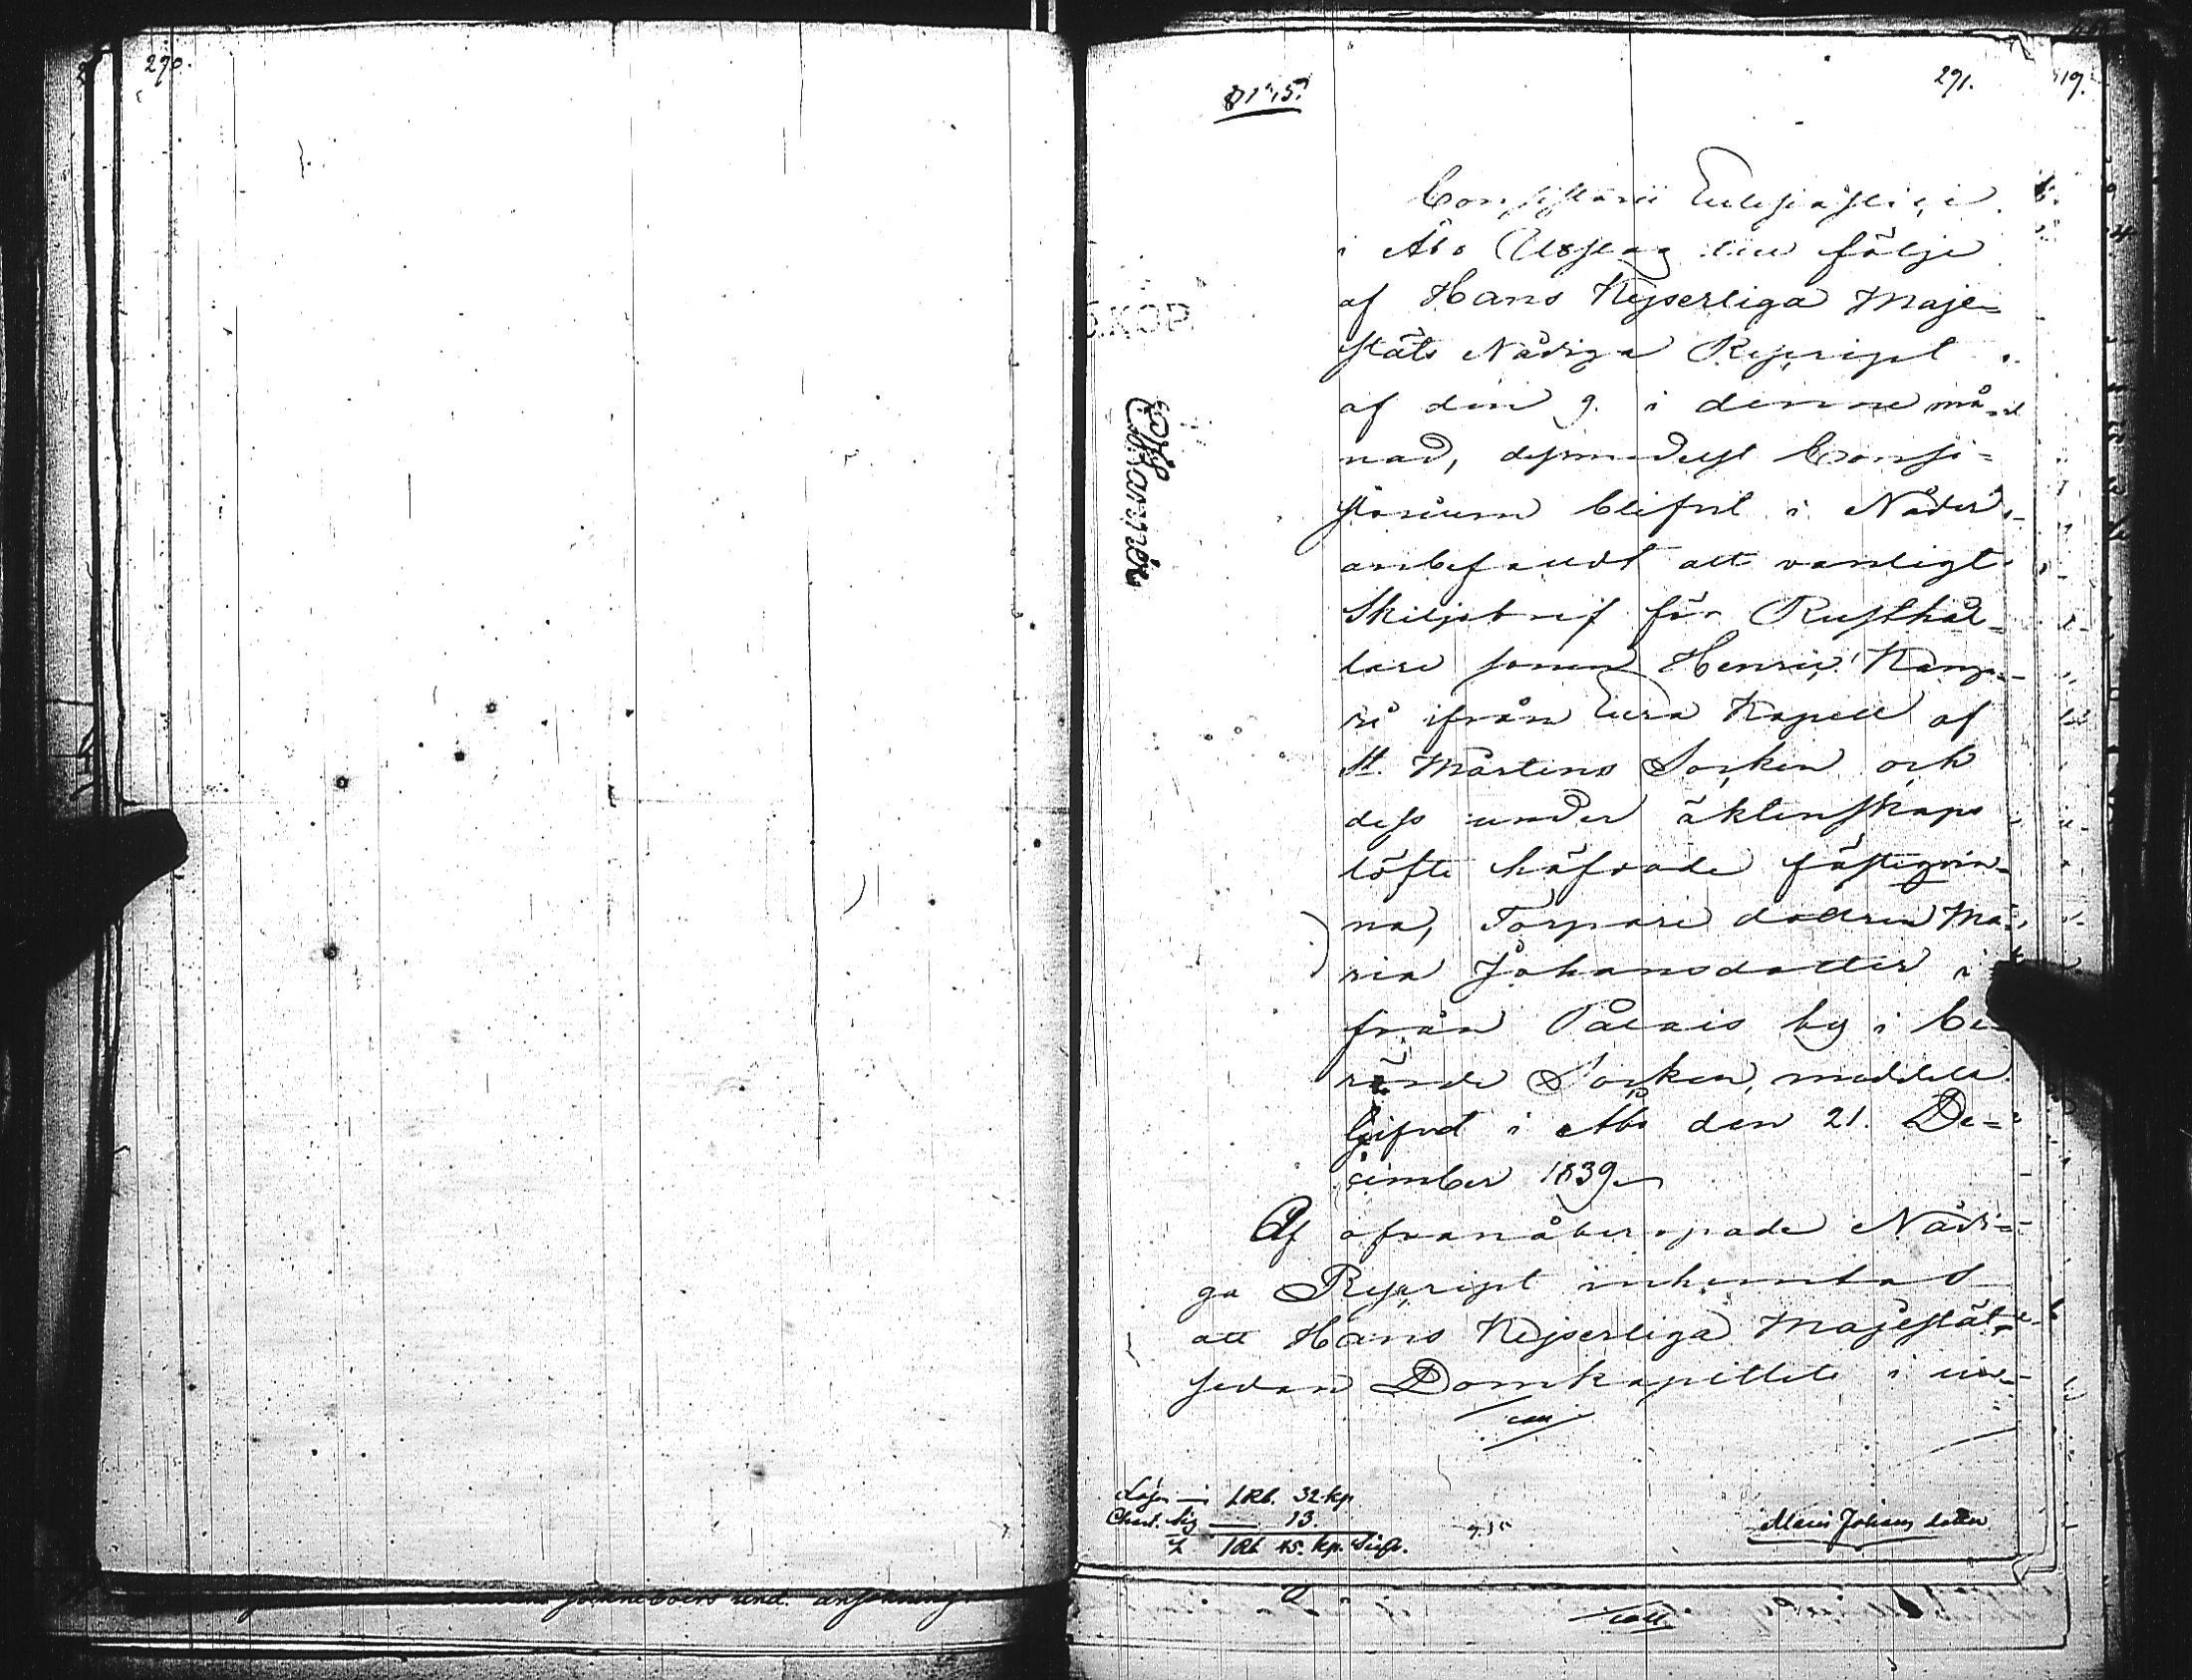 290.
291.
N:o 15.
Consistorii Ecclesiastici
i Åbo Utslag till följe
af Hans Kejserliga Maje-
stäts Nådiga Rescript
af den 9. i denne må-
nad, dymedelst Consi-
storium blifvit i Nåder
anbefaldt att vanligt
Skiljobref för Rusthål-
lare sonen Henric
ifrån Eura Kapell af
St. Mårtens Socken och
dess under äktenskaps
löfte häfvade fästeqvin-
na, Torpare dottren Ma-
ria Johansdotter i-
från by i be-
rörde Socken, meddela.
Gifvet i Åbo den 21. De-
cember 1839.
Af ofvanåberopade Nådi-
ga Rescript inhemtas
att Hans Kejserliga Majestät
sedan Domkapitlet i un-
Lösen 1 Rb. 32 kp
Chart. Sig 13.
1 Rb 45. kp. Silfr.
Maria Johans dotter